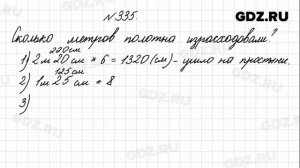 GDZ.RU
№335.
Сколько метров полотна израсходовали?
220см
1) 2м 20 см * 6 = 1320 (см) - ушло на простыни.
125см
2) 1м 25 см * 8
3)
GDZ.RU